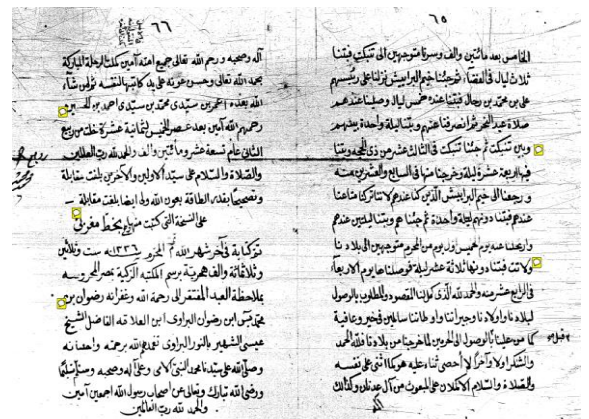 ٦٥
الخامس بعد مائتين والف وسرنا متوجهين الى تنبكت فبتنا
ثلاث ليال في الفقاء ثم جئنا خيم البرابيش نزلنا على رئيسهم
على بن محمد بن رحال فبتنا عنده خمس ليال وصلينا عندهم
صلاة عيد النحر ثم انصرفنا عنهم وبتنا ليلة واحدة بينهم
وبين تنبكت ثم جئنا تنبكت في الثالث عشر من ذي الحجه وبتنا
فيها اربعة عشرة ليلة وخرجنا منها في السابع والعشرين منه
ورجعنا الى خيم البرابيش الذين كنا عندهم لانا تركنا متاعنا
عندهم فبتنا دونهم ليلة واحدة ثم جئناهم وبتنا ليلتين عندهم
وارتحلنا عنه يوم خميس اول يوم من المحرم متوجهين الى بلادنا
ولاتت فبتنا دونها ثلاثة عشر ليلة فوصلناها يوم الاربعاء
في الرابع عشر منه والحمد لله الذي كمل لنا القصود والمطلوب بالوصول
لبلادنا واولادنا وجيراننا واوطاننا سالمين في خير وعافية
كما من علينا بالوصول الى الحرمين لما خرجنا من بلادنا فلله الحمد
والشكر اولا وآخرا لا أحصي ثناء عليه هو كما اثنى على نفسه
والصلاة والسلام الاكملان على المبعوث من آل عدنان وكذلك
٦٦
آله وصحبه ورحم الله تعالى جميع امته آمين كملت الرحلة المباركة
بحمد الله تعالى وحسن عونه على يد كاتبها لنفسه ثم لمن شاء
الله بعده اعمر بن سيدي محمد بن سيدي احمد
رحمهم الله آمين بعد عصر الخميس لثمانية عشرة خلت من ربيع
الثاني عام تسعة عشر ومائتين والف والحمد لله رب العالمين
والصلاة والسلام على سيد الاولين والآخرين بلغت مقابلة
وتصحيحا بقدر الطاقة بعون الله ولي ايضا بلغت مقابلة
على النسخة التي كتبت منها بخط مغربي
تم كتابة في آخر شهر الله المحرم ١٣٣٦ سنة ست وثلاثين
وثلاثمائة والف هجرية برسم المكتبه الزكية بمصر المحروسه
بملاحظة العبد المفتقر الى رحمة الله وغفرانه رضوان بن
محمد بن رضوان البراوى ابن العلامه الفاضل الشيخ
عيسى الشهير بالنور البراوى تغمدهم الله برحمته واحسانه
وصلى الله على سيدنا محمد النبي الامي وعلى آله وصحبه وسلم تسليما
ورضي الله تبارك وتعالى عن اصحاب رسول الله اجمعين آمين
والحمد لله رب العالمين